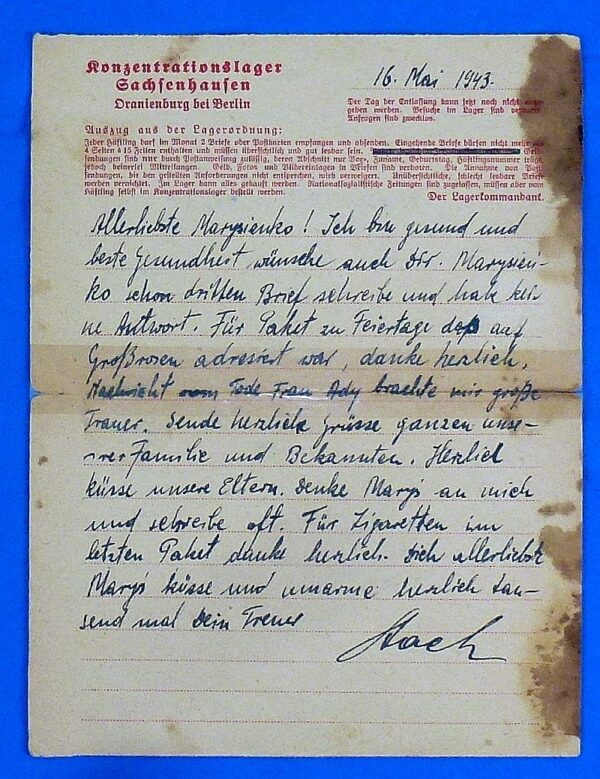 Konzentrationslager
Sachsenhausen
Oranienburg bei Berlin
16. Mai 1943.
Der Tag der Entlassung kann jetzt noch nicht
geben werden. Besuche im Lager sind
Anfragen sind zwecklos.
Auszug aus der Lagerordnung:
Jeder Häftling darf im Monat 2 Briefe oder Postkarten empfangen und absenden. Eingehende Briefe dürfen nicht mehr als
4 Seiten à 15 Zeilen enthalten und müssen übersichtlich und gut lesbar sein.
sendungen sind nur durch Postanweisung zulässig, deren Abschnitt nur Vor-, Zuname, Geburtstag, Häftlingsnummer trägt,
jedoch keinerlei Mitteilungen. Geld, Fotos und Bildereinlagen in Briefen sind verboten. Die Annahme von
sendungen, die den gestellten Anforderungen nicht entsprechen, wird verweigert. Unübersichtliche, schlecht lesbare Briefe
werden vernichtet. Im Lager kann alles gekauft werden. Nationalsozialistische Zeitungen sind zugelassen, müssen aber vom
Häftling selbst im Konzentrationslager bestellt werden.
Der Lagerkommandant.
Allerliebste Marysienko! Ich bin gesund und
beste Gesundheit wünsche auch Dir. Marysien-
ko schon dritten Brief schreibe und habe kei-
ne Antwort. Für Paket zu Feiertage daß auf
Großrosen adresiert war, danke herzlich.
Nachricht vom Tode Frau Ady brachte mir große
Trauer. Sende herzliche Grüsse ganzen unse-
rer Familie und Bekannten. Herzlich
küsse unsere Eltern. Denke Maryś an mich
und schreibe oft. Für Zigaretten im
letzten Paket danke herzlich. Dich allerliebste
Maryś küsse und umarme herzlich tau-
send mal Dein Treuer
Stach